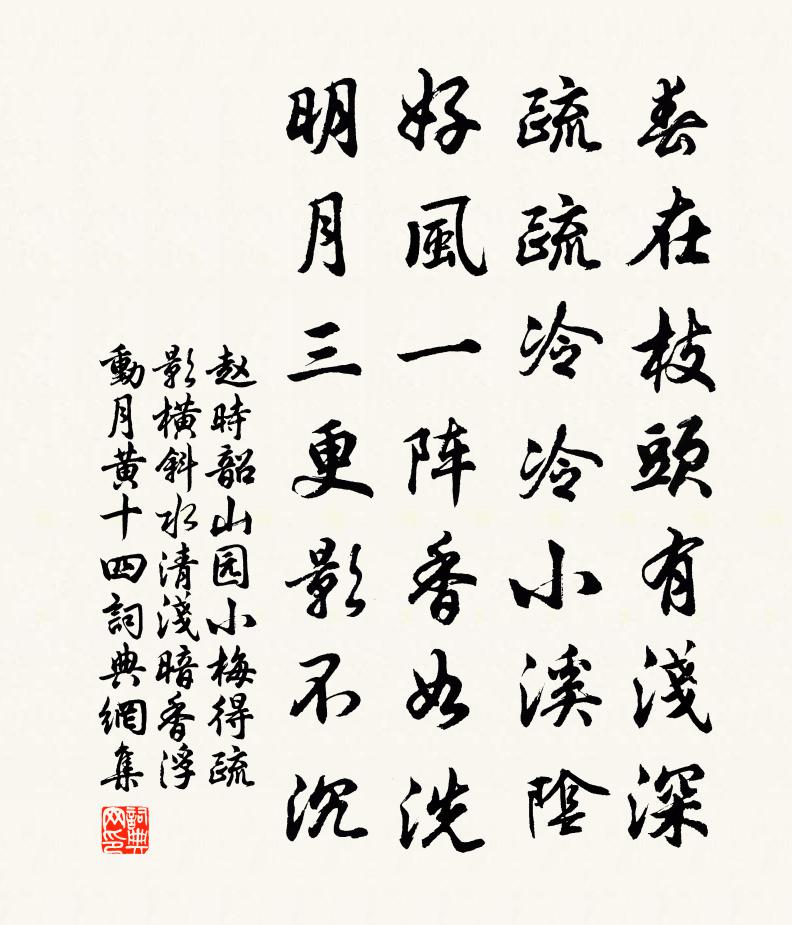 春在枝頭有淺深
疏疏冷冷小溪陰
好風一阵香如洗
明月三更影不沉
赵時韶山园小梅得疏
影橫斜水清淺暗香浮
動月黄十四詞典網集
詞典网印